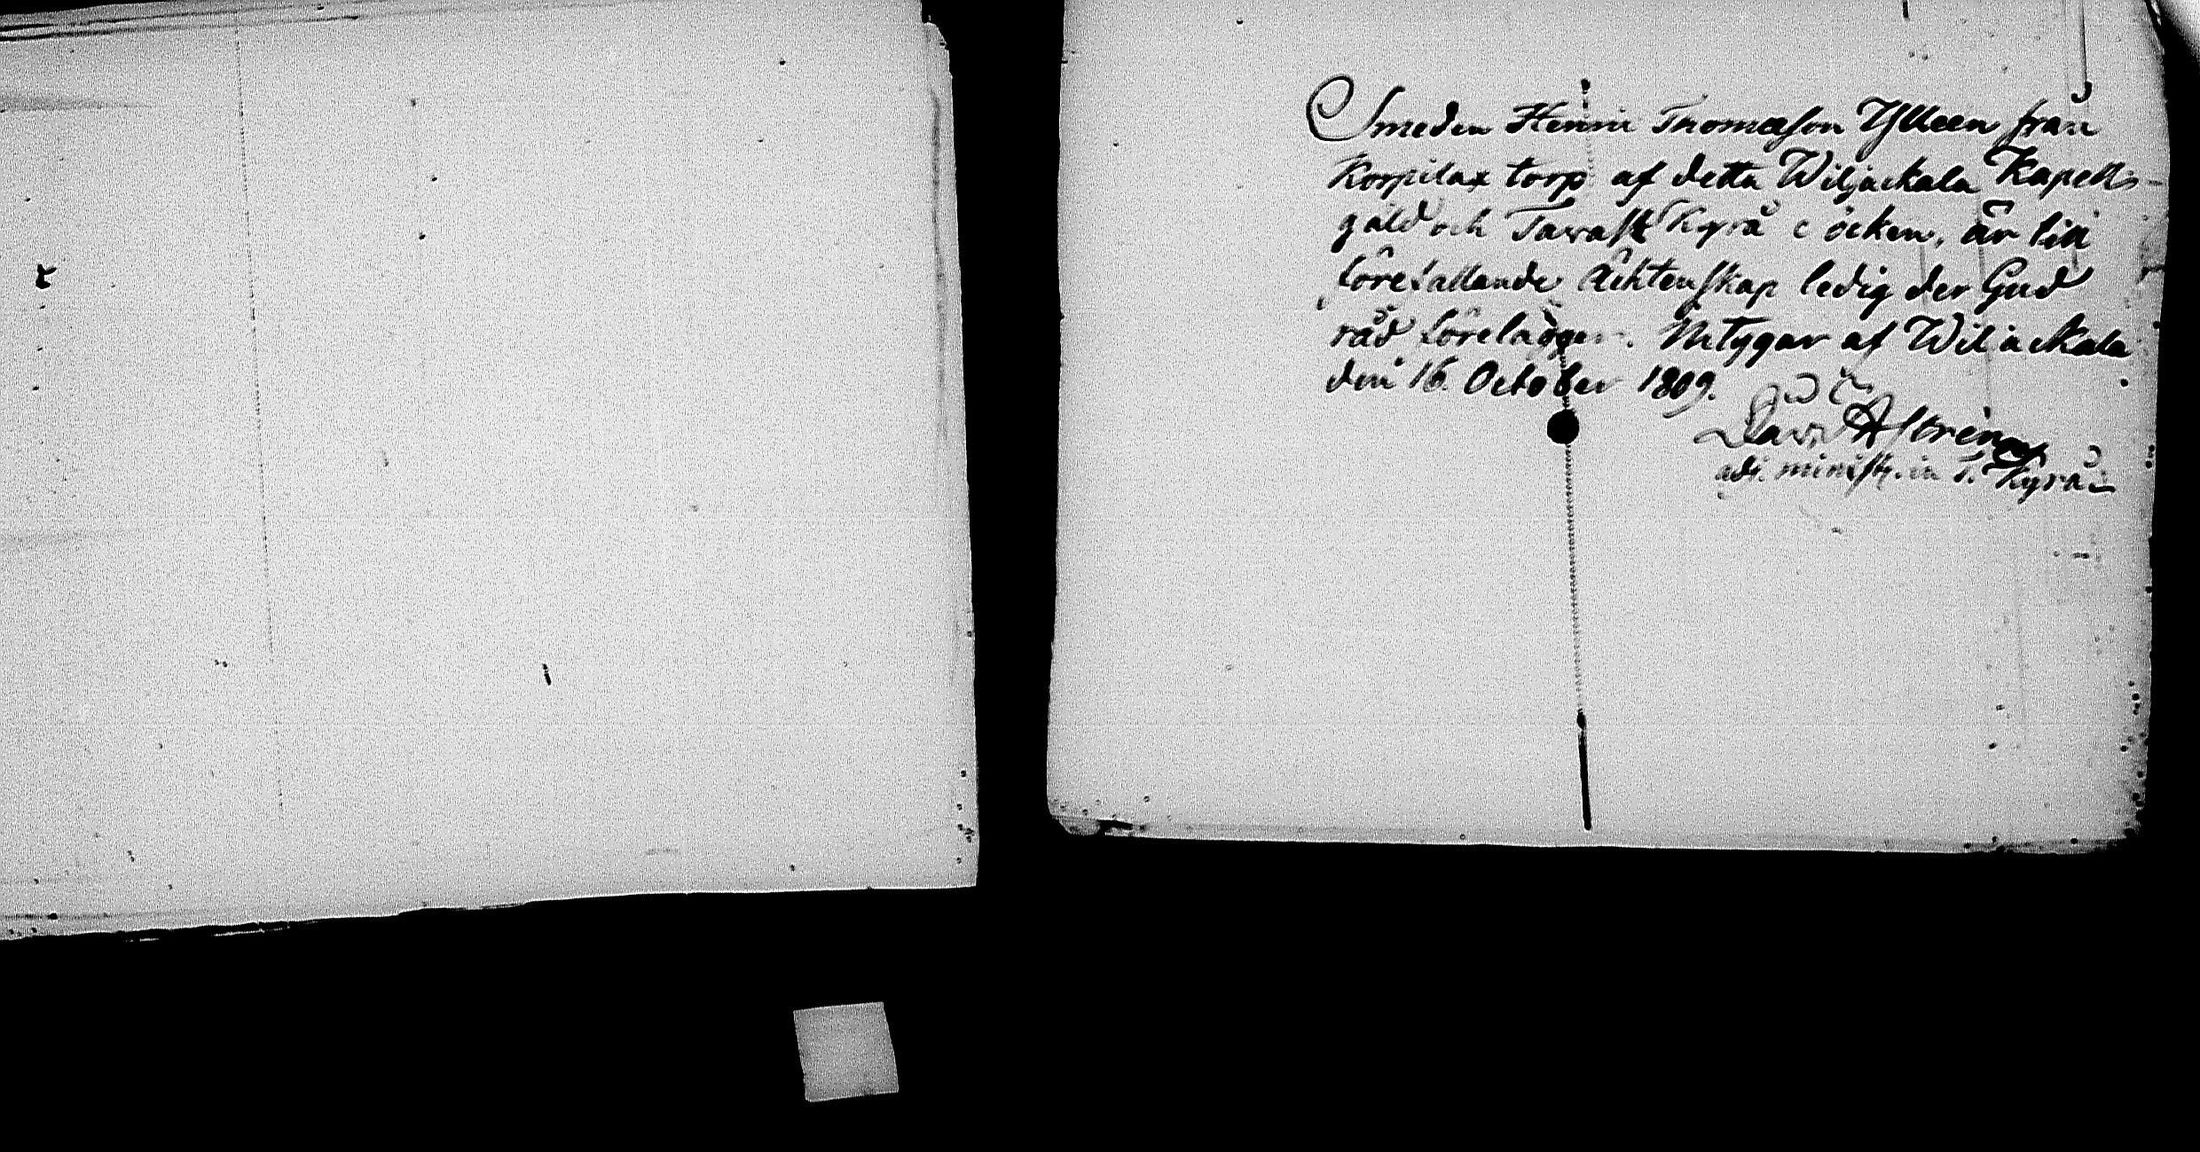 Smeden Henric Thomasson Ylleen från
Korpilax torp af detta Wiljackala Kapells-
gäld och Tavast Kyrå Socken, är till
förefallande Ächtenskap ledig der Gud
råd förelägger. Intygar af Wiljackala
den 16. October 1809.
David Astrenius
adj. ministr. in T. Kyrå